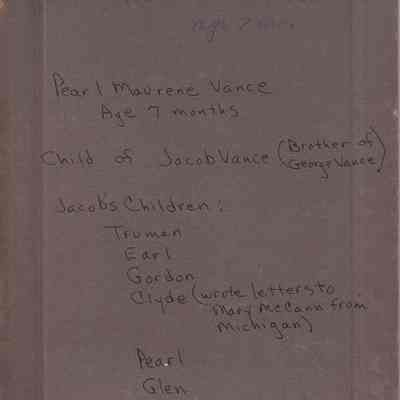 Age 7 mo.
Pearl Maurene Vance
Age 7 months
Child of Jacob Vance (Brother of
George Vance)
Jacob's Children:
Truman
Earl
Gordon
Clyde (wrote letters to
Mary McCann from
Michigan)
Pearl
Glen